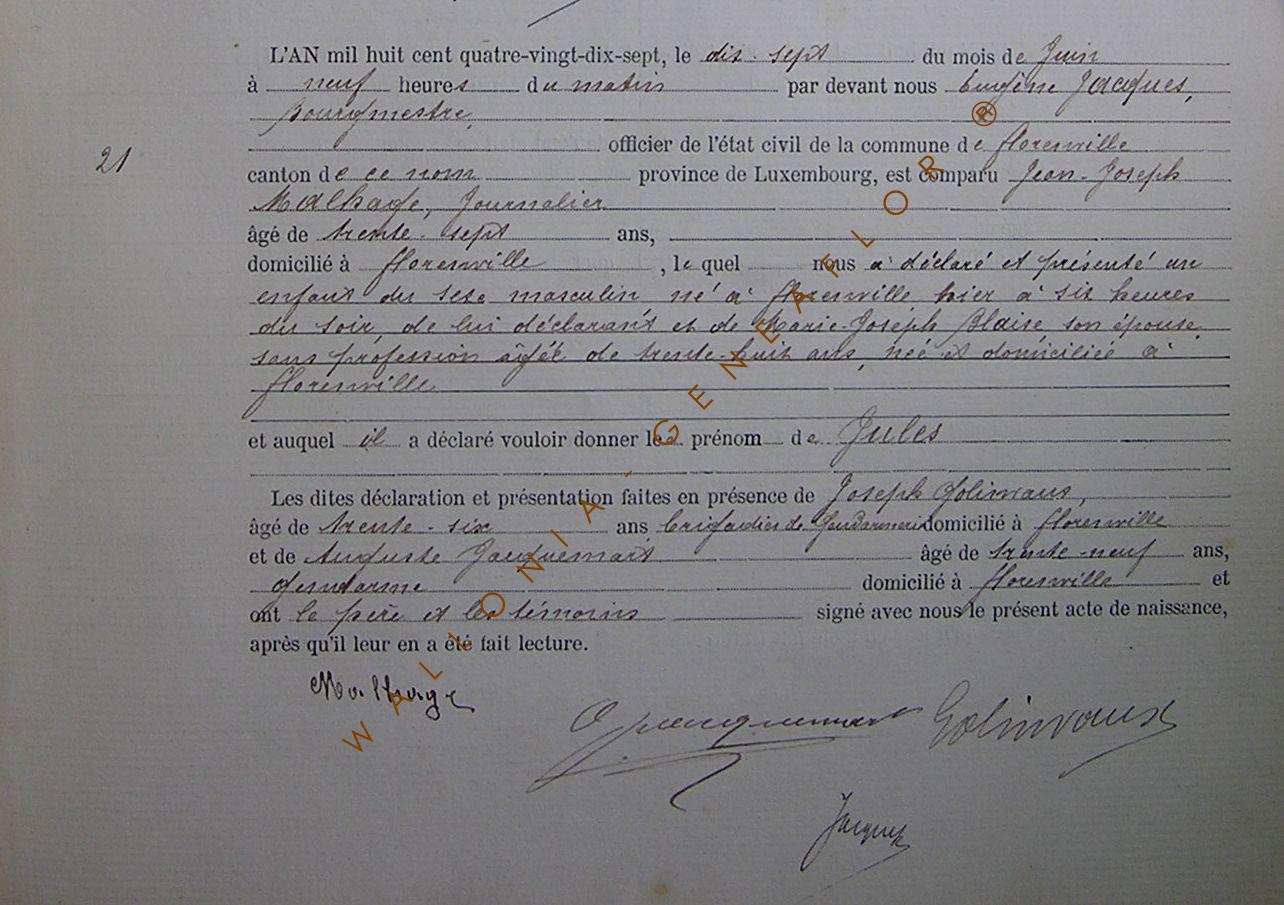 L'AN mil huit cent quatre-vingt-dix-sept, le dix-sept du mois de Juin
à neuf heures du matin par devant nous Eugène Jacques,
Bourgmestre,
officier de l'état civil de la commune de florenville
21
canton de ce nom province de Luxembourg, est comparu Jean-Joseph
Malhage, Journalier
âgé de trente-sept ans,
domicilié à florenville, le quel nous a déclaré et présenté un
enfant du sexe masculin né à florenville hier à six heures
du soir, de lui déclarant et de Marie-Joseph Blaise son épouse,
sans profession âgée de trente-huit ans, née et domiciliée à
florenville
et auquel il a déclaré vouloir donner les prénom de Jules
Les dites déclaration et présentation faites en présence de Joseph Golinvaux,
âgé de trente-six ans brigadier de Gendarmerie domicilié à florenville
et de Auguste Jacquemart âgé de trente-neuf ans,
gendarme domicilié à florenville et
ont le père et les témoins signé avec nous le présent acte de naissance,
après qu'il leur en a été fait lecture.
Malhage
A Jacquemart Golinvaux
Jacques
WALLONIA-GENEAFLOR®